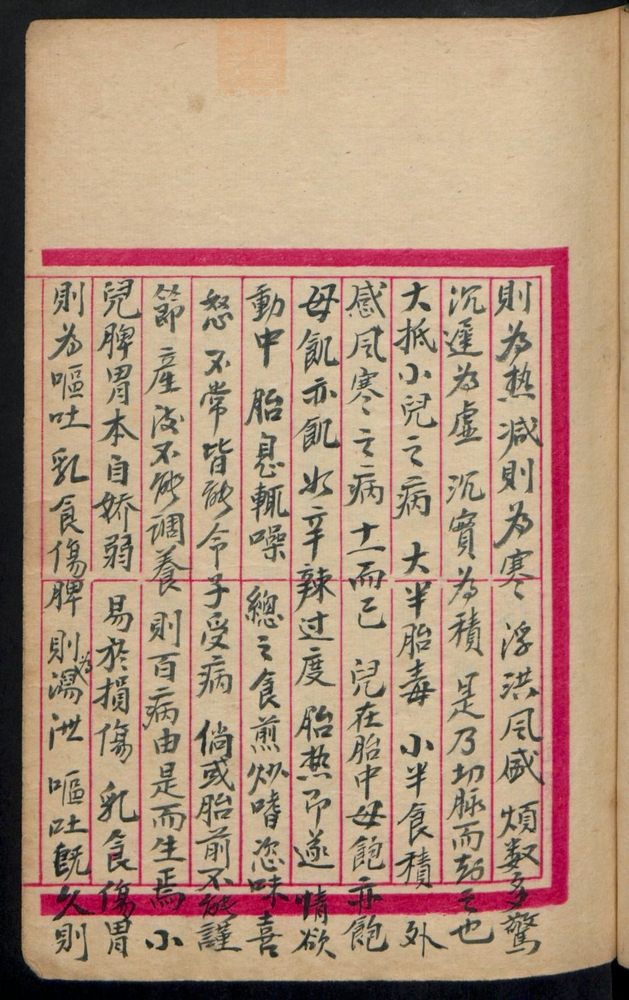 則為熱減則為寒 浮洪風盛 煩數多驚
沉遲為虛 沉實為積 是乃切脉而知之也
大抵小兒之病 大半胎毒 小半食積 外
感風寒之病 十一而已 兒在胎中母飽亦飽
母飢亦飢 如辛辣过度 胎熱即遂 情欲
動中 胎息輒噪 總之食煎炒嗜恣味喜
怒不常皆能令子受病 倘或胎前不能謹
節 產後不能調養 則百病由是而生焉 小
兒脾胃本自娇弱 易於損傷 乳食傷胃
則為嘔吐 乳食傷脾 則為瀉泄 嘔吐既久則